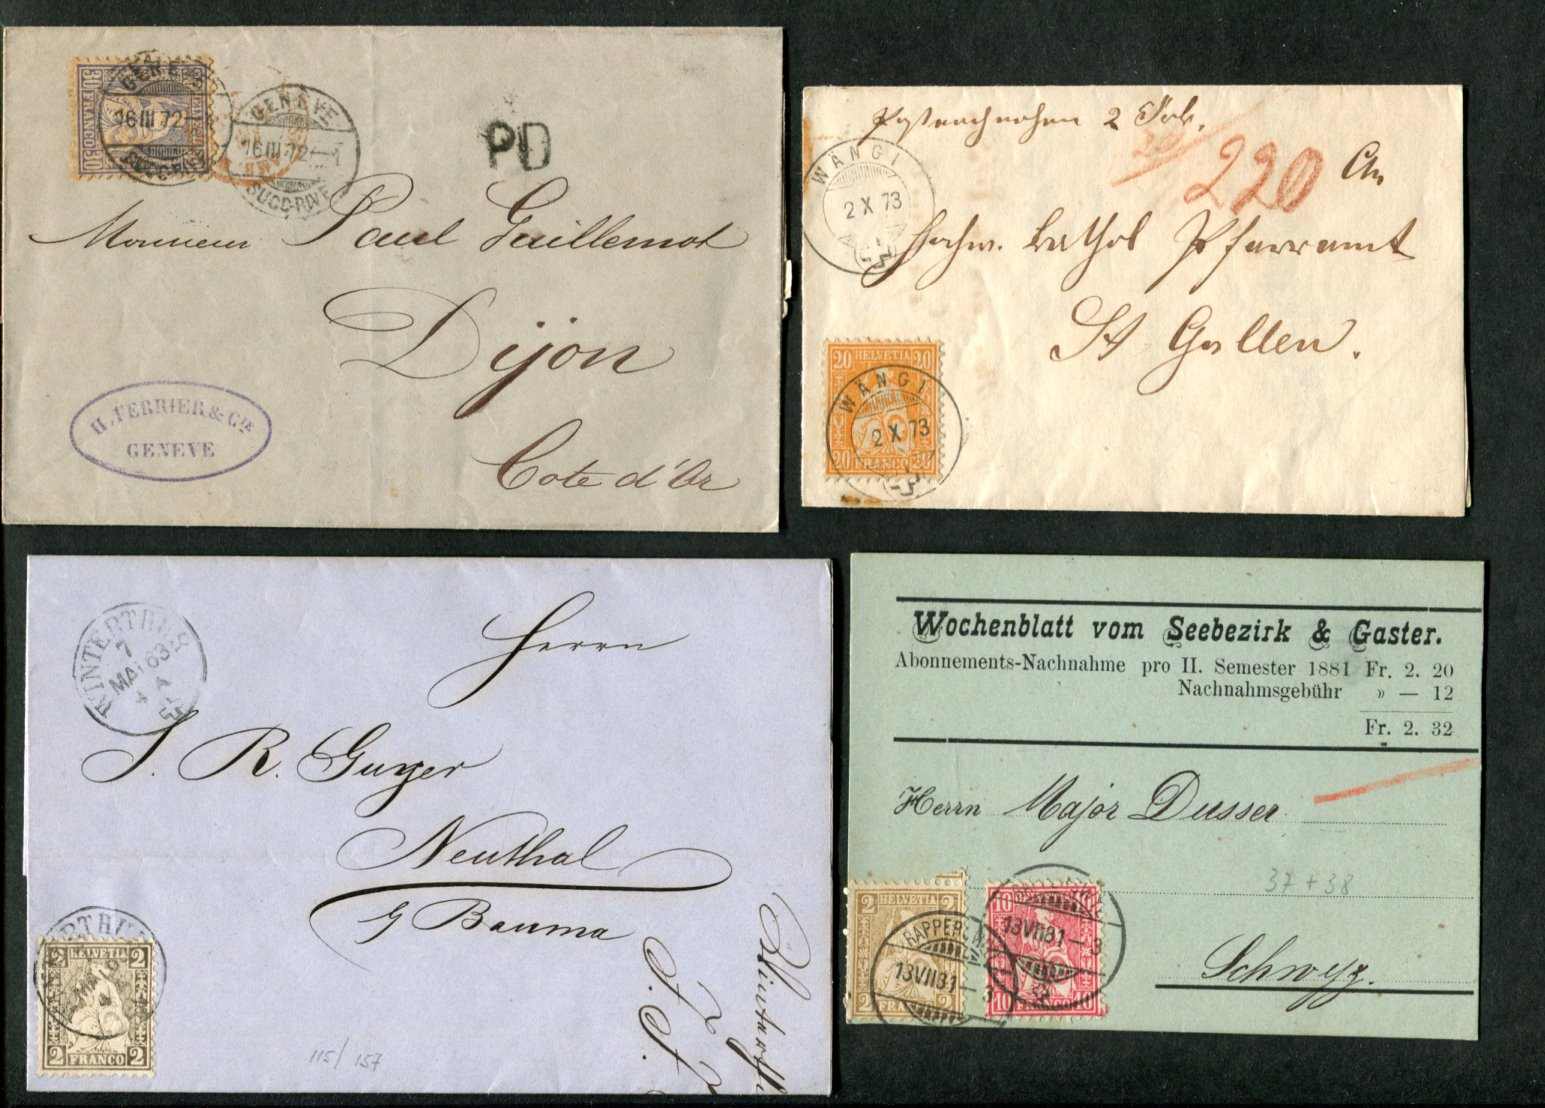 GENÈVE
16 III 72
GENÈVE
16 III 72-
SUCC-RIVE
PD
Monsieur Paul Guillemot
Dijon
Cote d'Or
H. FERRIER & Cie
GENEVE
2 Frb.
220
An
WÄNGI
2 X 73
Hochw. kathol Pfarramt
St Gallen.
20 HELVETIA 20
WÄNGI
2 X 73
20 FRANCO 20
WINTERTHUR
7
MAI 63
4 A
Herrn
J. R. Guyer
Neuthal
g Bauma
2 HELVETIA 2
2 FRANCO 2
115/157
Wochenblatt vom Seebezirk & Gaster.
Abonnements-Nachnahme pro II. Semester 1881 Fr. 2. 20
Nachnahmsgebühr » — 12
Fr. 2. 32
Herrn Major Dusser
37 + 38
2 HELVETIA 2
13 VII 81-3
13 VII 81-3
10 FRANCO 10
Schwyz.